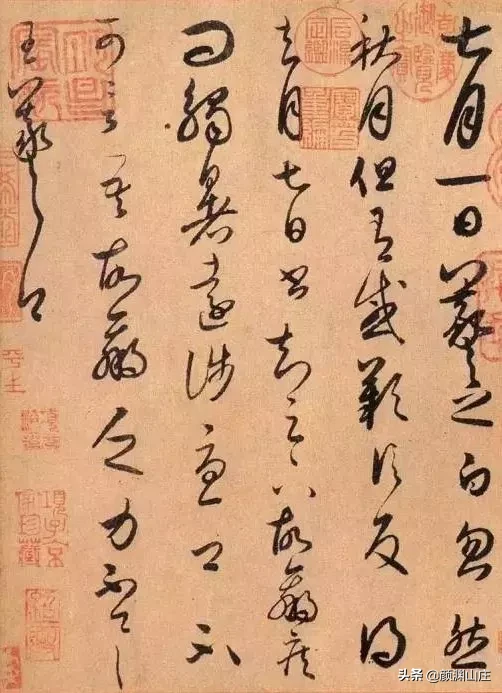 七月一日羲之白忽然
秋月但有感歎信反得
去月七日書知足下故羸疾
問觸暑遠涉憂卿不
可言吾故羸乏力不具
王羲之白
头条 @颜渊山庄